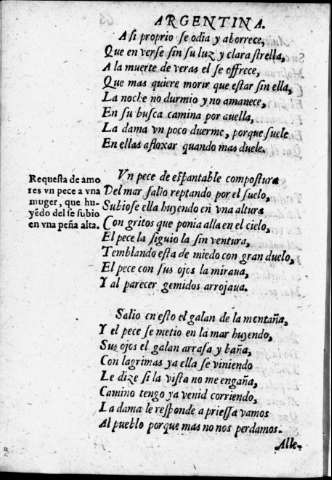 ARGENTINA.
A si proprio se odia y aborrece,
Que en verse sin su luz y clara strella,
A la muerte de veras el se offrece,
Que mas quiere morir que estar sin ella,
La noche no durmio y no amanece,
En su busca camina por auella,
La dama vn poco duerme, porque suele
En ellas afloxar quando mas duele.
Requesta de amo
res vn pece a vna
muger, que hu-
yẽdo del se subio
en vna peña alta.
Vn pece de espantable compostura
Del mar salio reptando por el suelo,
Subiose ella huyendo en vna altura
Con gritos que ponia alla en el cielo,
El pece la siguio la sin ventura,
Temblando esta de miedo con gran duelo,
El pece con sus ojos la miraua,
Y al parecer gemidos arrojaua.
Salio en esto el galan de la montaña,
Y el pece se metio en la mar huyendo,
Sus ojos el galan arrasa y baña,
Con lagrimas ya ella se viniendo
Le dize si la vista no me engaña,
Camino tengo ya venid corriendo,
La dama le responde a priessa vamos
Al pueblo porque mas no nos perdamos.
Alle-